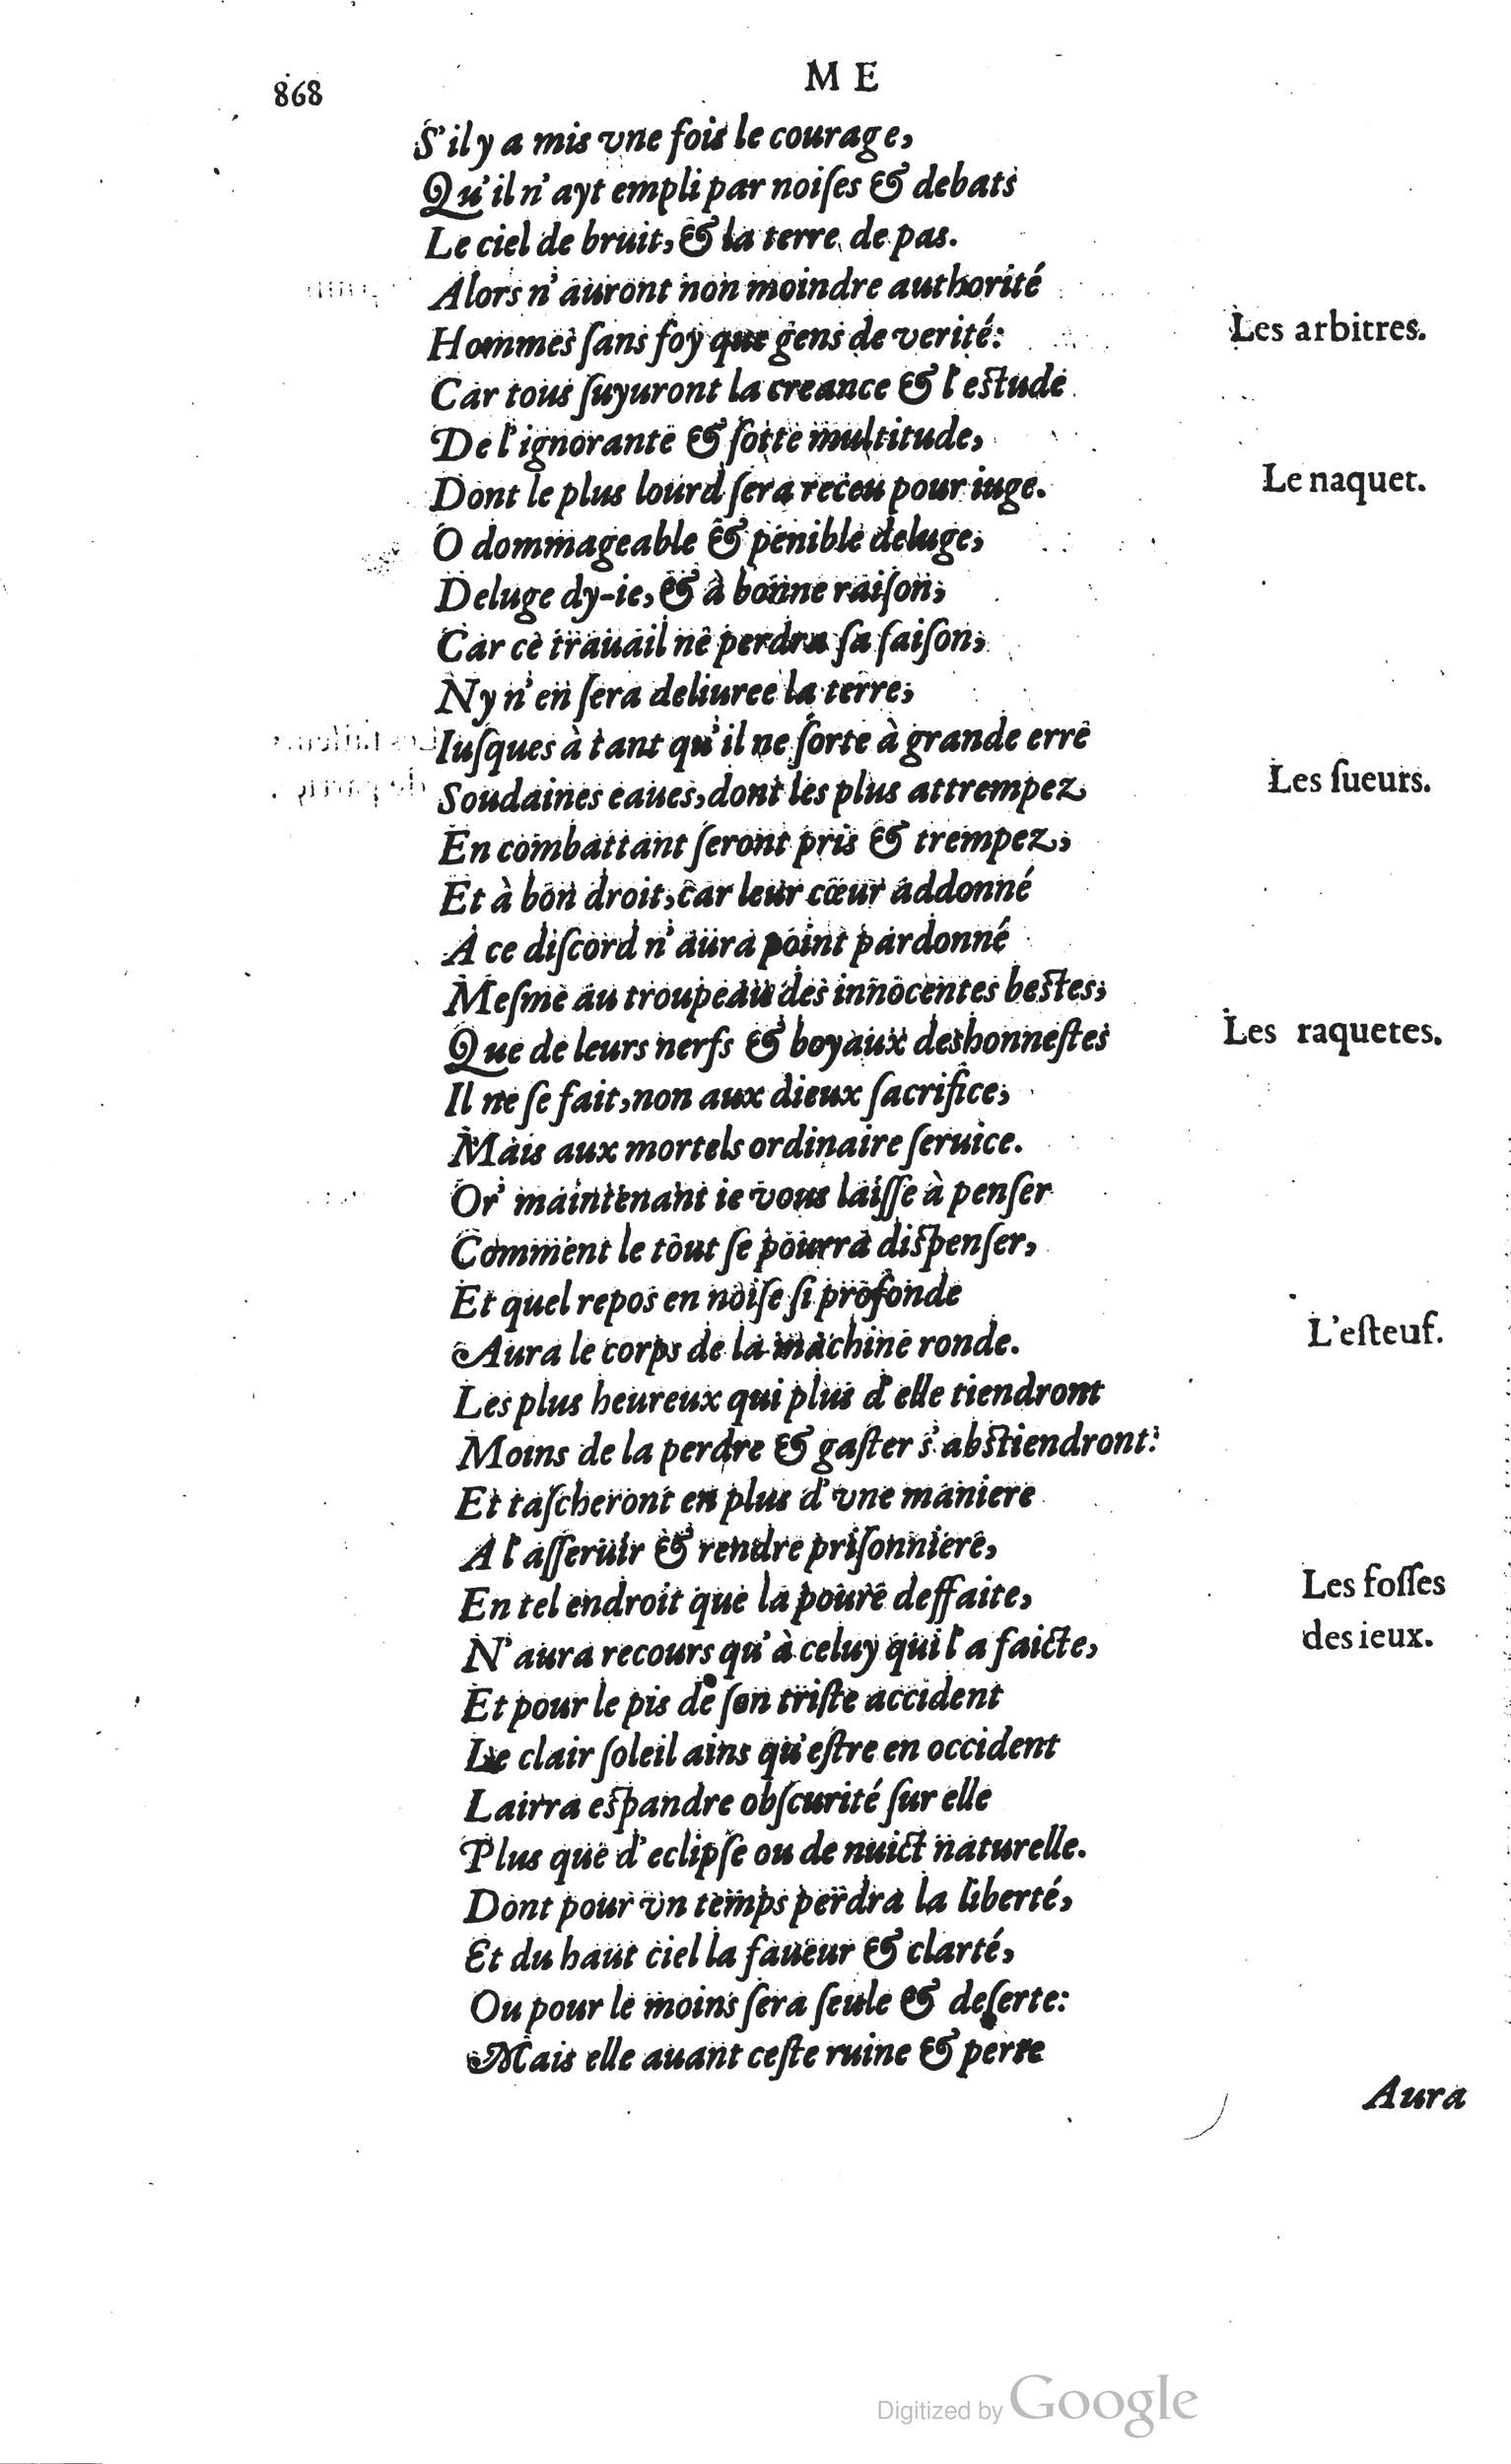 868
M E
S'il y a mis vne fois le courage,
Qu'il n'ayt empli par noiſes & debats
Le ciel de bruit, & la terre de pas.
Alors n'auront non moindre authorité
Hommes ſans foy que gens de verité:
Les arbitres.
Car tous ſuyuront la creance & l'eſtude
De l'ignorante & ſotte multitude,
Dont le plus lourd ſera receu pour iuge.
Le naquet.
O dommageable & penible deluge,
Deluge dy-ie, & à bonne raiſon,
Car ce trauail ne perdra ſa ſaiſon,
Ny n'en ſera deliuree la terre,
Iuſques à tant qu'il ne ſorte à grande erre
Soudaines eaues, dont les plus attrempez
Les ſueurs.
En combattant ſeront pris & trempez,
Et à bon droit, car leur cœur addonné
A ce diſcord n'aura point pardonné
Meſme au troupeau des innocentes beſtes,
Que de leurs nerfs & boyaux deshonneſtes
Les raquetes.
Il ne ſe fait, non aux dieux ſacrifice,
Mais aux mortels ordinaire ſeruice.
Or' maintenant ie vous laiſſe à penſer
Comment le tout ſe pourra diſpenſer,
Et quel repos en noiſe ſi profonde
Aura le corps de la machine ronde.
L'eſteuf.
Les plus heureux qui plus d'elle tiendront
Moins de la perdre & gaſter s'abſtiendront:
Et taſcheront en plus d'vne maniere
A l'aſſeruir & rendre priſonniere,
En tel endroit que la poure deffaite,
Les foſſes
N'aura recours qu'à celuy qui l'a faicte,
des ieux.
Et pour le pis de ſon triſte accident
Le clair ſoleil ains qu'eſtre en occident
Lairra eſpandre obſcurité ſur elle
Plus que d'eclipſe ou de nuict naturelle.
Dont pour vn temps perdra la liberté,
Et du haut ciel la faueur & clarté,
Ou pour le moins ſera ſeule & deſerte:
Mais elle auant ceſte ruine & perte
Aura
Digitized by Google